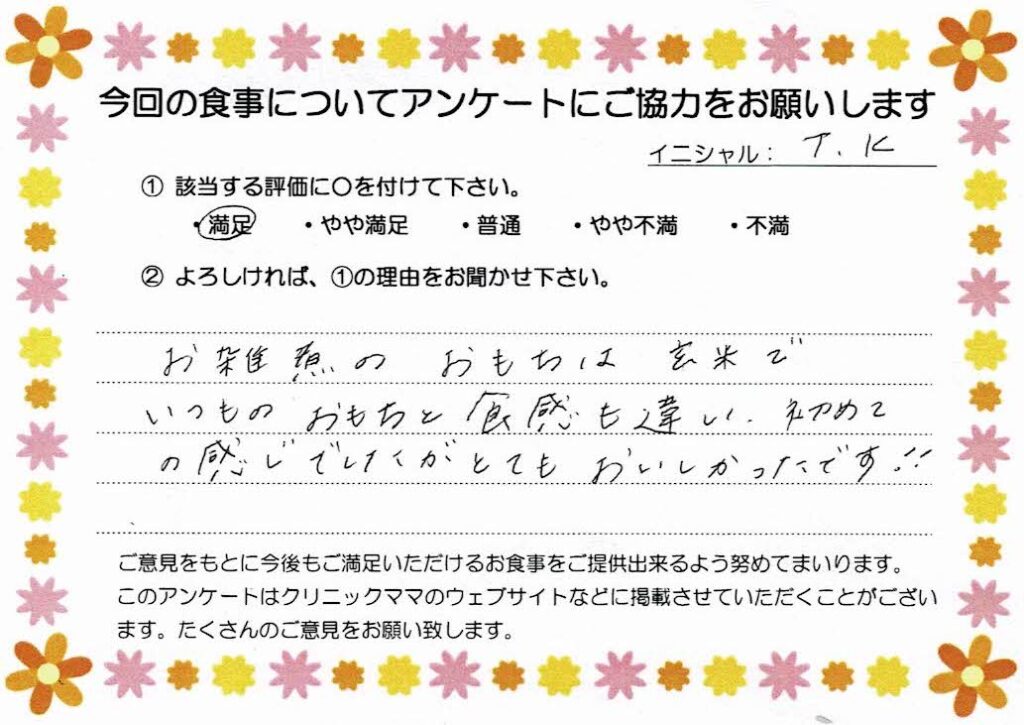 今回の食事についてアンケートにご協力をお願いします
イニシャル： T. K
① 該当する評価に○を付けて下さい。
・満足 ・やや満足 ・普通 ・やや不満 ・不満
② よろしければ、①の理由をお聞かせ下さい。
お雑煮の おもちは 玄米で
いつもの おもちと 食感も違い、初めて
の感じでしたがとても おいしかったです!!
ご意見をもとに今後もご満足いただけるお食事をご提供出来るよう努めてまいります。
このアンケートはクリニックママのウェブサイトなどに掲載させていただくことがござい
ます。たくさんのご意見をお願い致します。